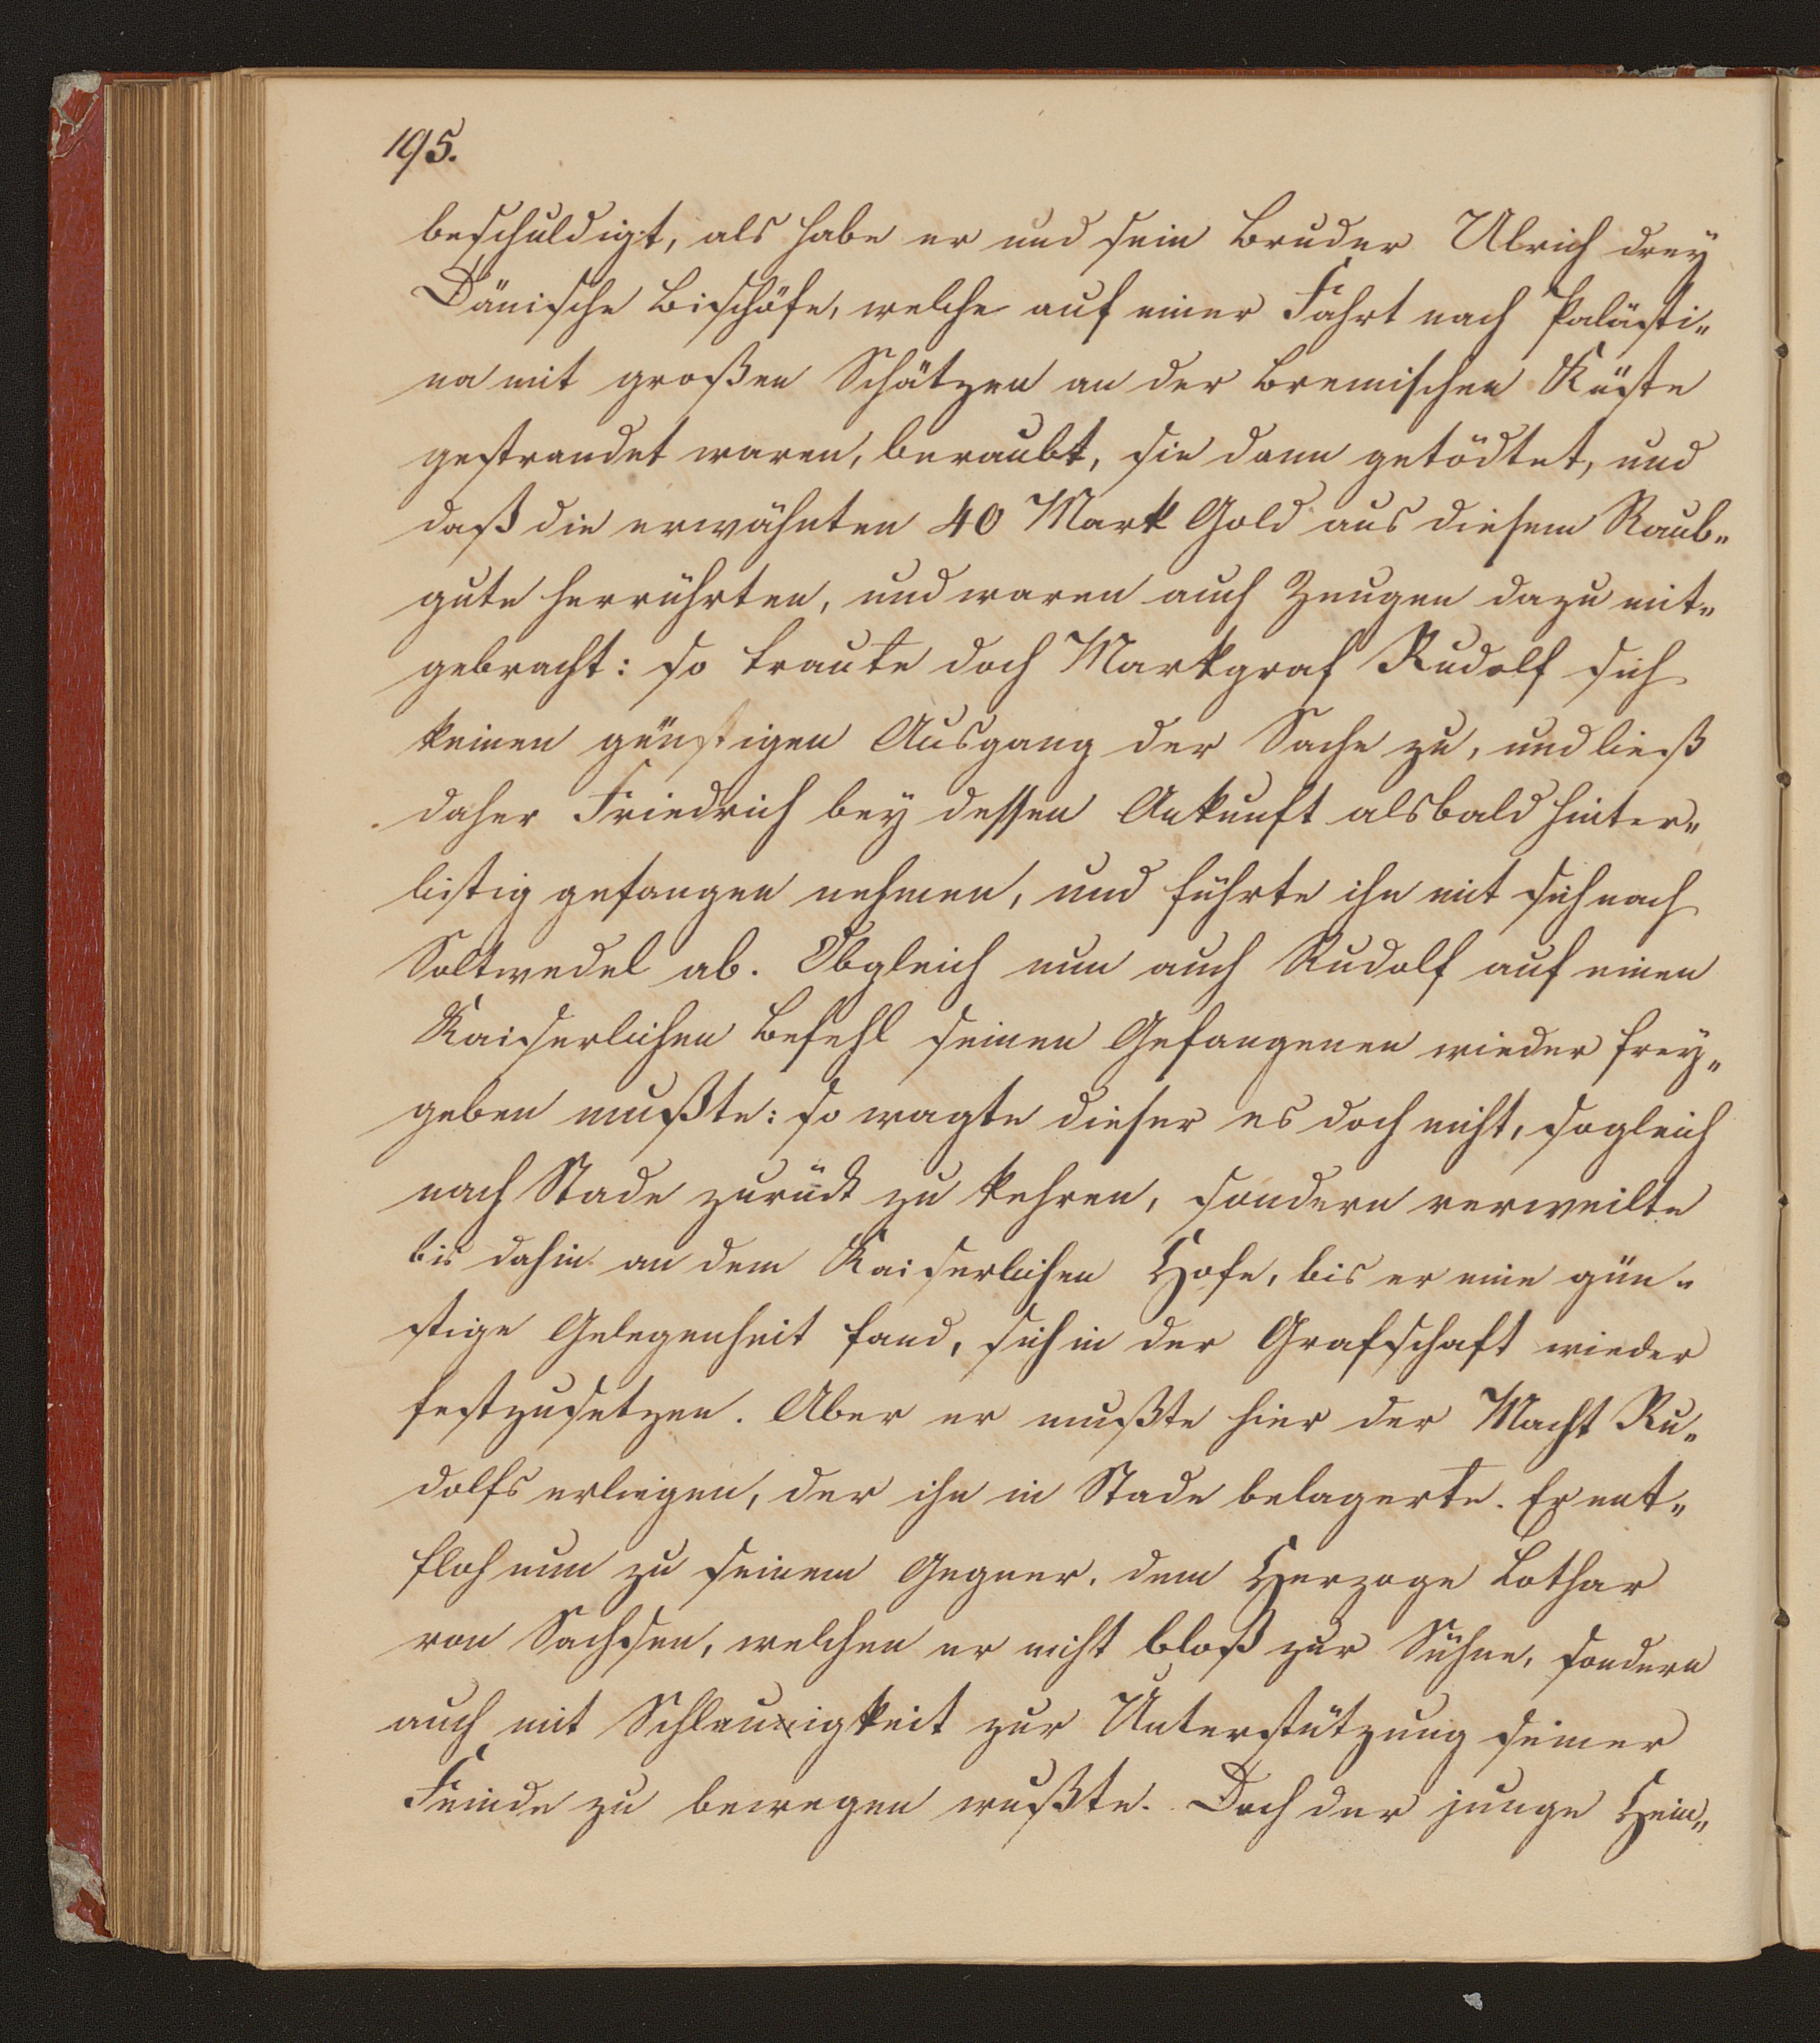 195.
beschuldigt, als habe er und sein Bruder Ulrich drey
Dänische Bischöfe, welche auf einer Fahrt nach Palästi„
na mit großen Schätzen an der Bremischen Küste
gestrandet waren, beraubt, sie dann getödtet, und
daß die erwähnten 40 Mark Gold aus diesem Raub„
gute herrührten, und waren auch Zeugen dazu mit„
gebracht: so traute doch Markgraf Rudolf sich
keinen günstigen Ausgang der Sache zu, und ließ
daher Friedrich bey dessen Ankunft alsbald hinter„
listig gefangen nehmen, und führte ihn mit sich nach
Soltwedel ab. Obgleich nun auch Rudolf auf einen
Kaiserlichen Befehl seinen Gefangenen wieder frey„
geben mußte: so wagte dieser es doch nicht, sogleich
nach Stade zurück zu kehren, sondern verweilte
bis dahin an dem Kaiserlichen Hofe, bis er eine gün„
stige Gelegenheit fand, sich in der Grafschaft wieder
festzusetzen. Aber er mußte hier der Macht Ru„
dolfs erliegen, der ihn in Stade belagerte. Er ent„
floh nun zu seinem Gegner, dem Herzoge Lothar
von Sachsen, welchen er nicht bloß zur Sühne, sondern
auch mit Schlauigkeit zur Unterstützung seiner
Feinde zu bewegen wußte. Doch der junge Hein„